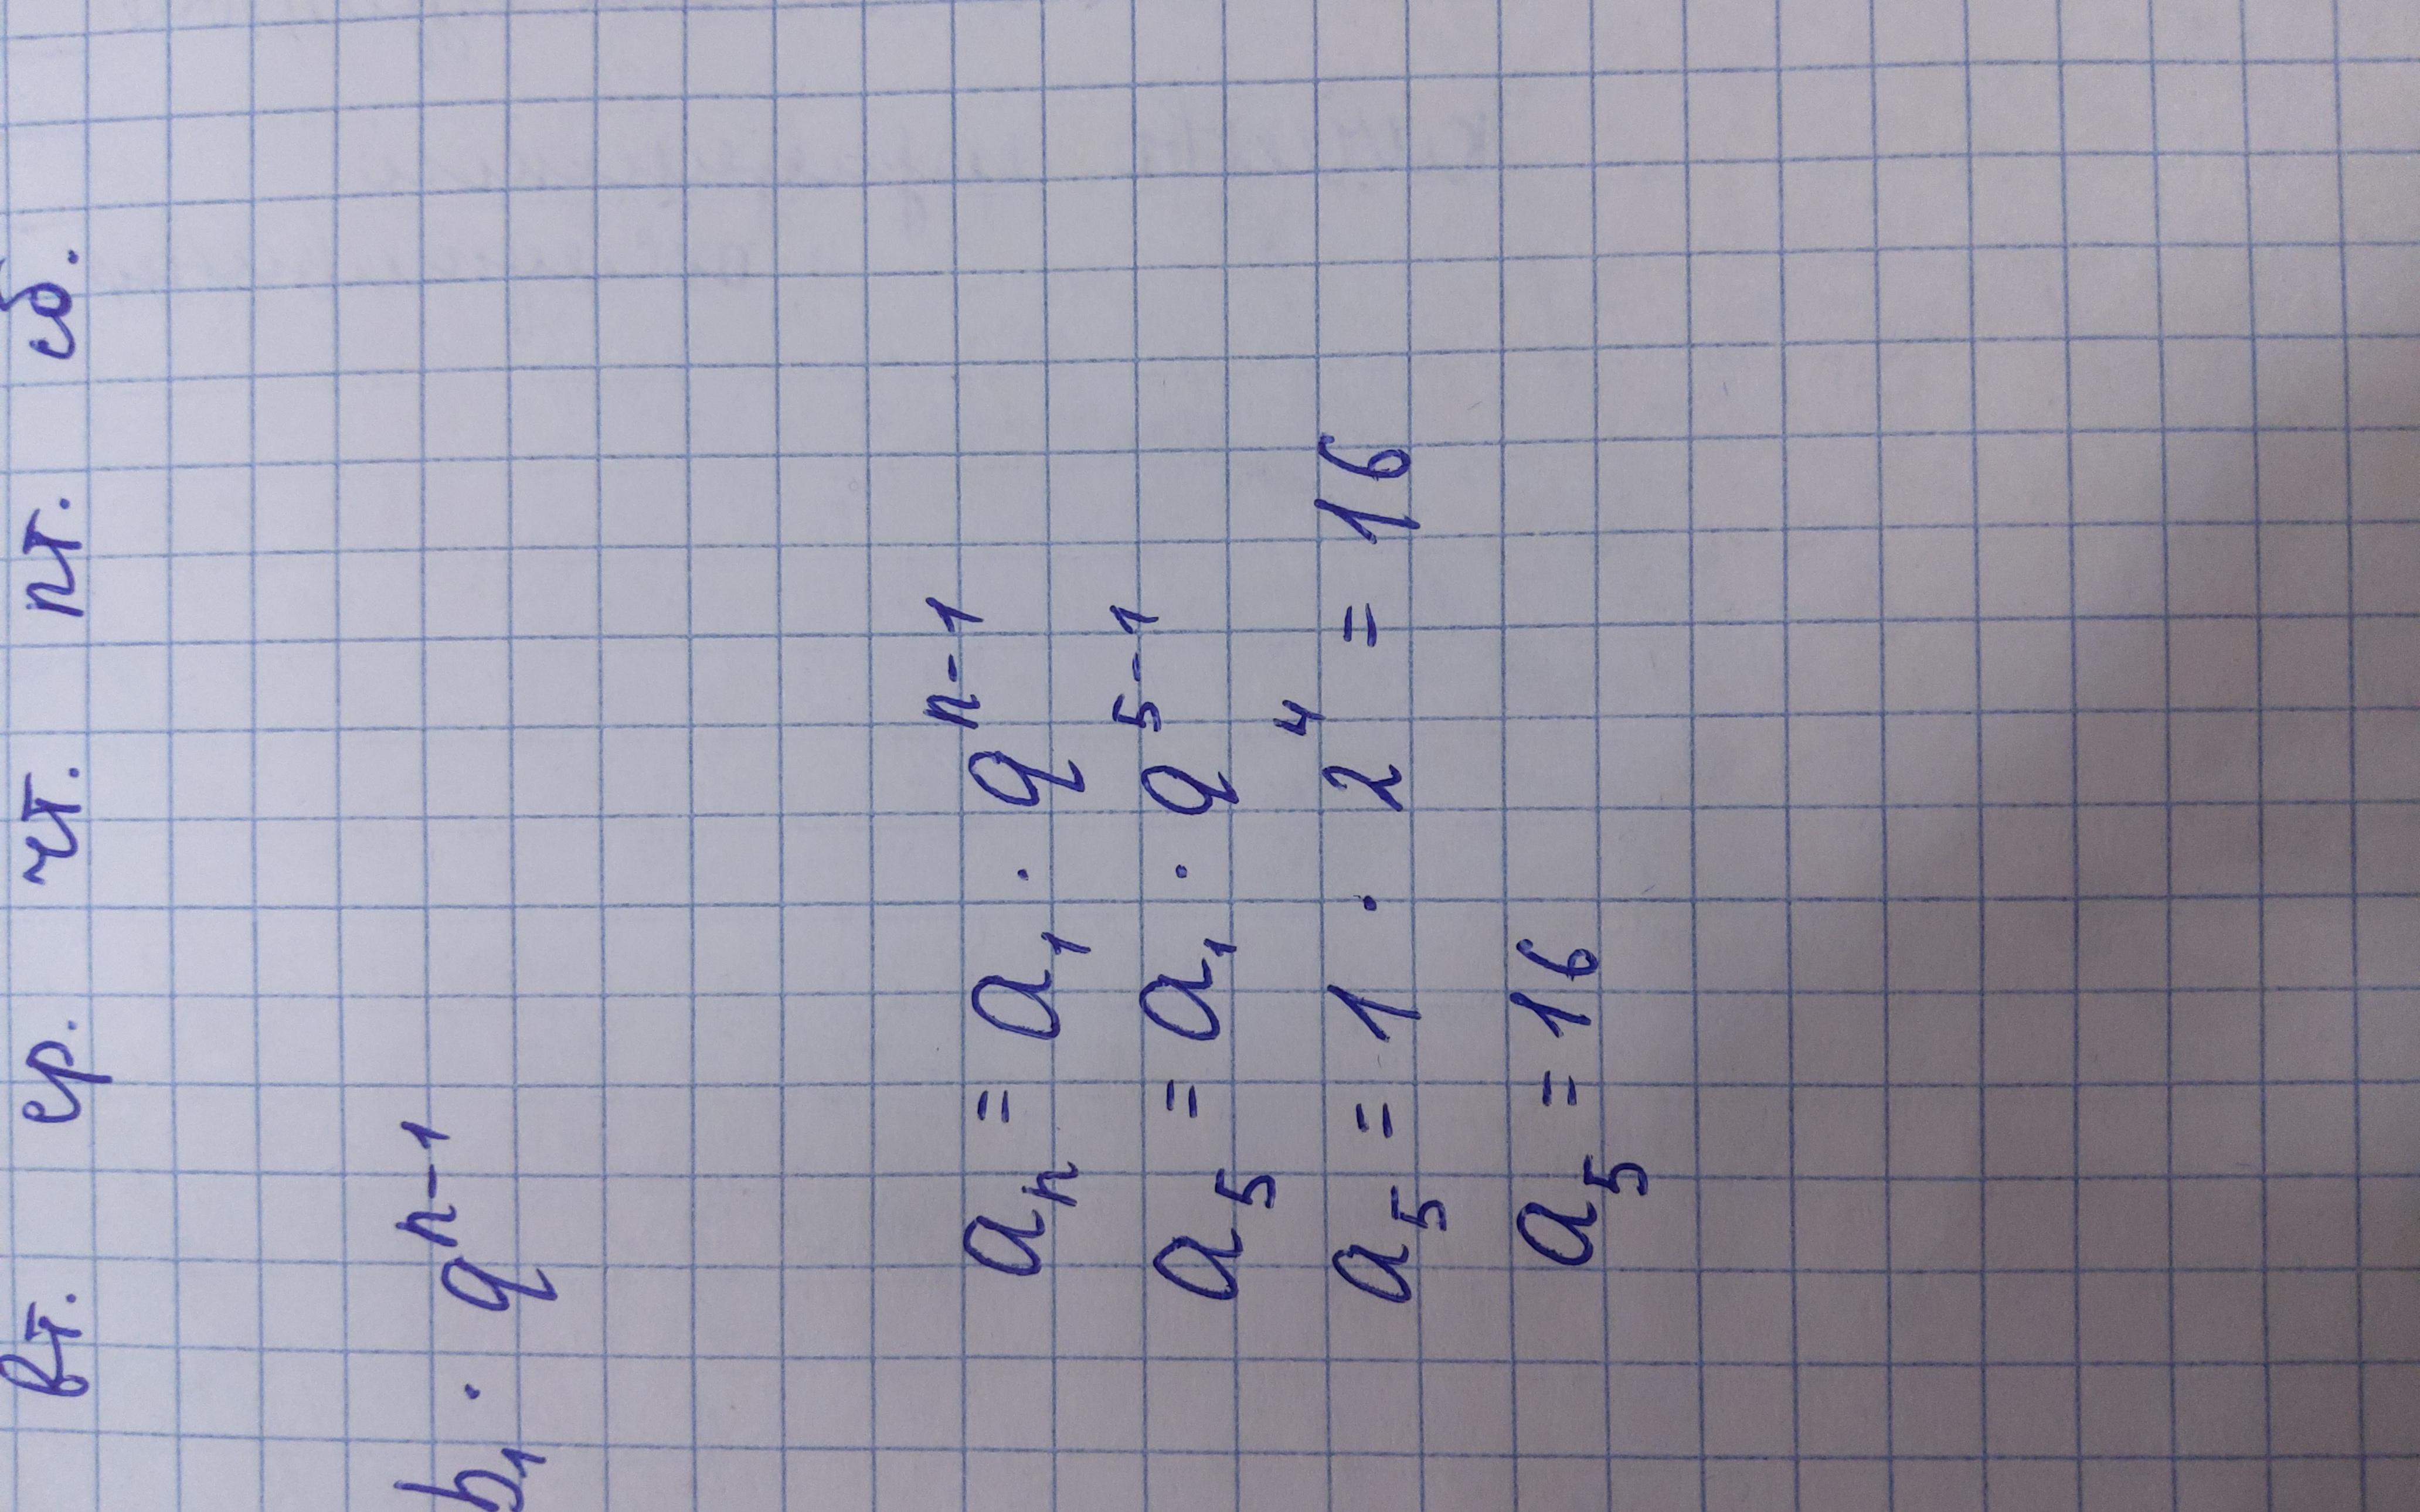 вт. ср. чт. пт. сб.
b₁ · qⁿ⁻¹
aₙ = a₁ · qⁿ⁻¹
a₅ = a₁ · q⁵⁻¹
a₅ = 1 · 2⁴ = 16
a₅ = 16